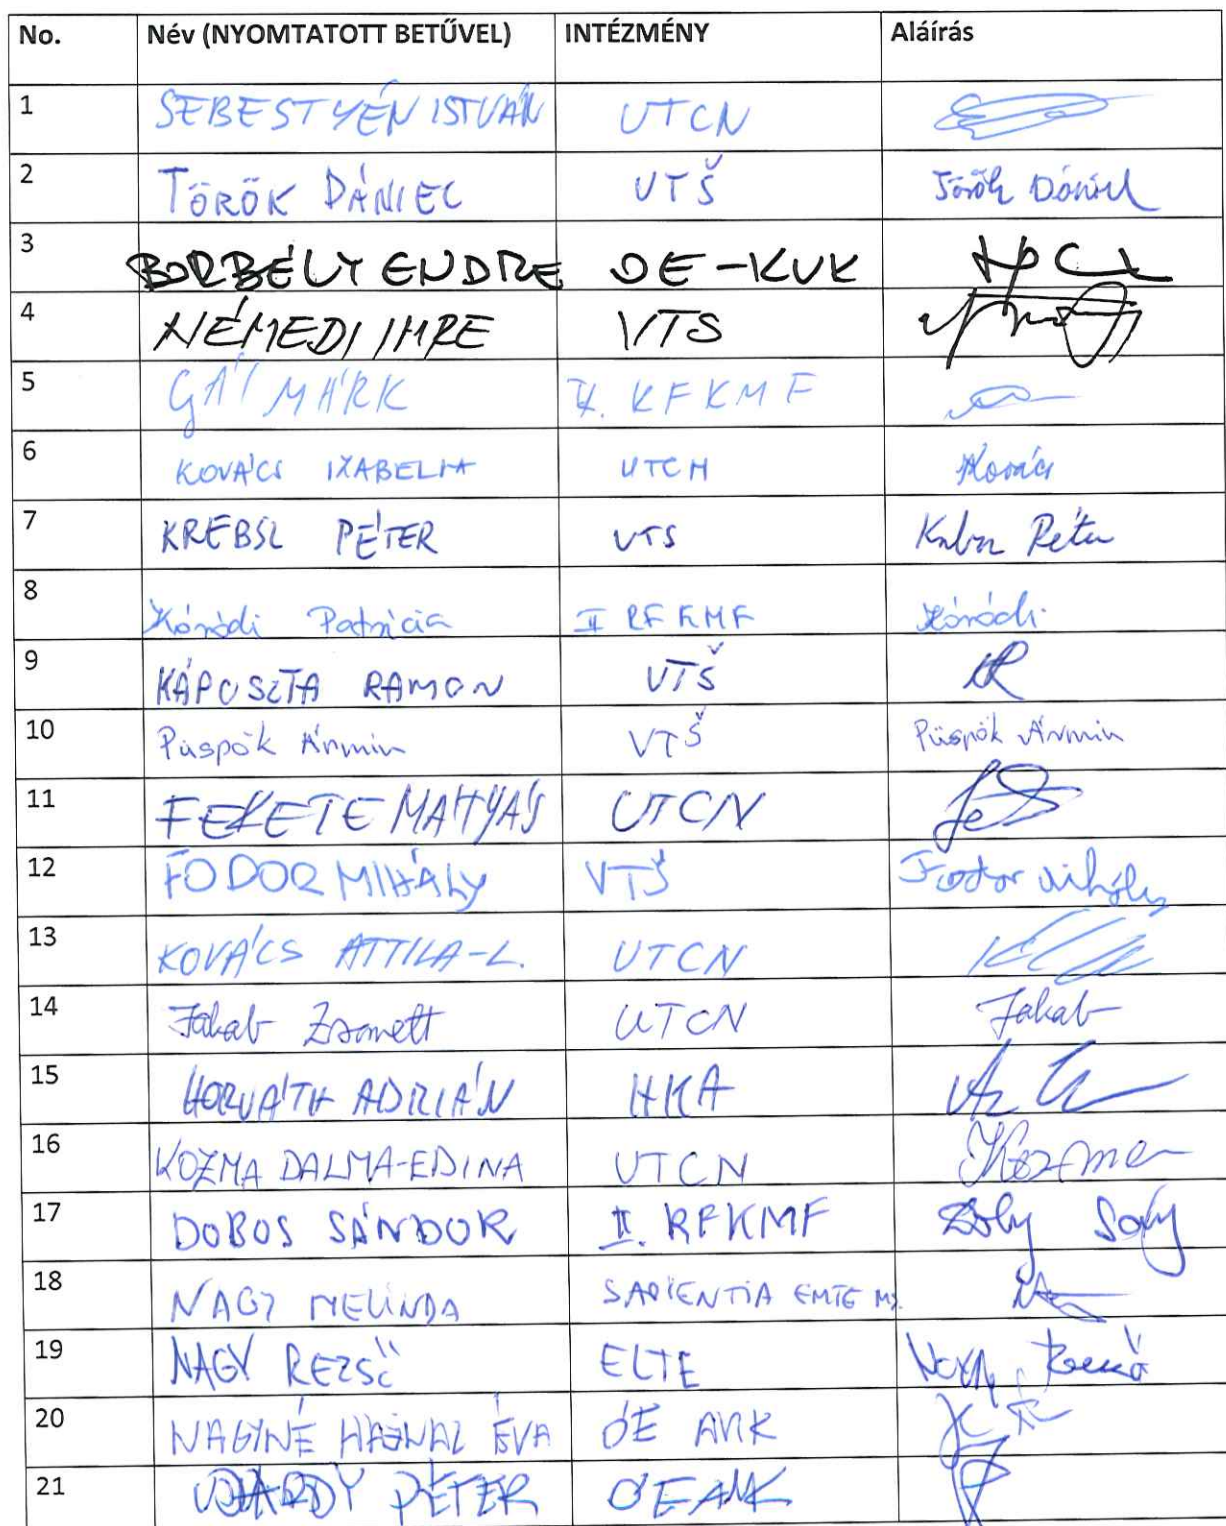 No. Név (NYOMTATOTT BETŰVEL) INTÉZMÉNY Aláírás
1 SEBESTYÉN ISTVÁN UTCN
2 TÖRÖK DÁNIEL VTŠ Török Dániel
3 BORBÉLY ENDRE OE-KVK
4 NÉMEDI IMRE VTS
5 GÁL MÁRK II. RFKMF
6 KOVÁCS IZABELLA UTCN Kovács
7 KREBSZ PÉTER VTS Krebsz Péter
8 Kóródi Patrícia II RFKMF Kóródi
9 KÁPOSZTA RAMON VTŠ KR
10 Püspök Ármin VTŠ Püspök Ármin
11 FEKETE MÁTYÁS UTCN
12 FODOR MIHÁLY VTŠ Fodor Mihály
13 KOVÁCS ATTILA-L. UTCN
14 Jakab Zsanett UTCN Jakab
15 HORVÁTH ADRIÁN HKA
16 KOZMA DALMA-EDINA UTCN Kozma
17 DOBOS SÁNDOR II. RFKMF
18 NAGY MELINDA SAPIENTIA EMTE MS.
19 NAGY REZSŐ ELTE Nagy Rezső
20 NAGYNÉ HAJNAL ÉVA ÓE AMK
21 PÉTER ÓE AMK